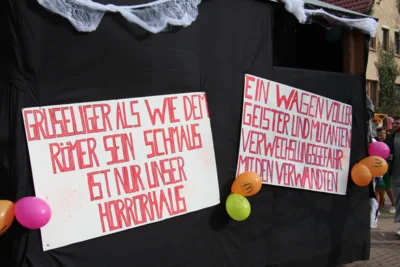 GRUSELIGER ALS WIE DEM
RÖMER SEIN SCHMAUS
IST NUR UNSER
HORRORHAUS
EIN WAGEN VOLLER
GEISTER UND MUTANTEN
VERWECHSLUNGSGEFAHR
MIT DEN VERWANDTEN